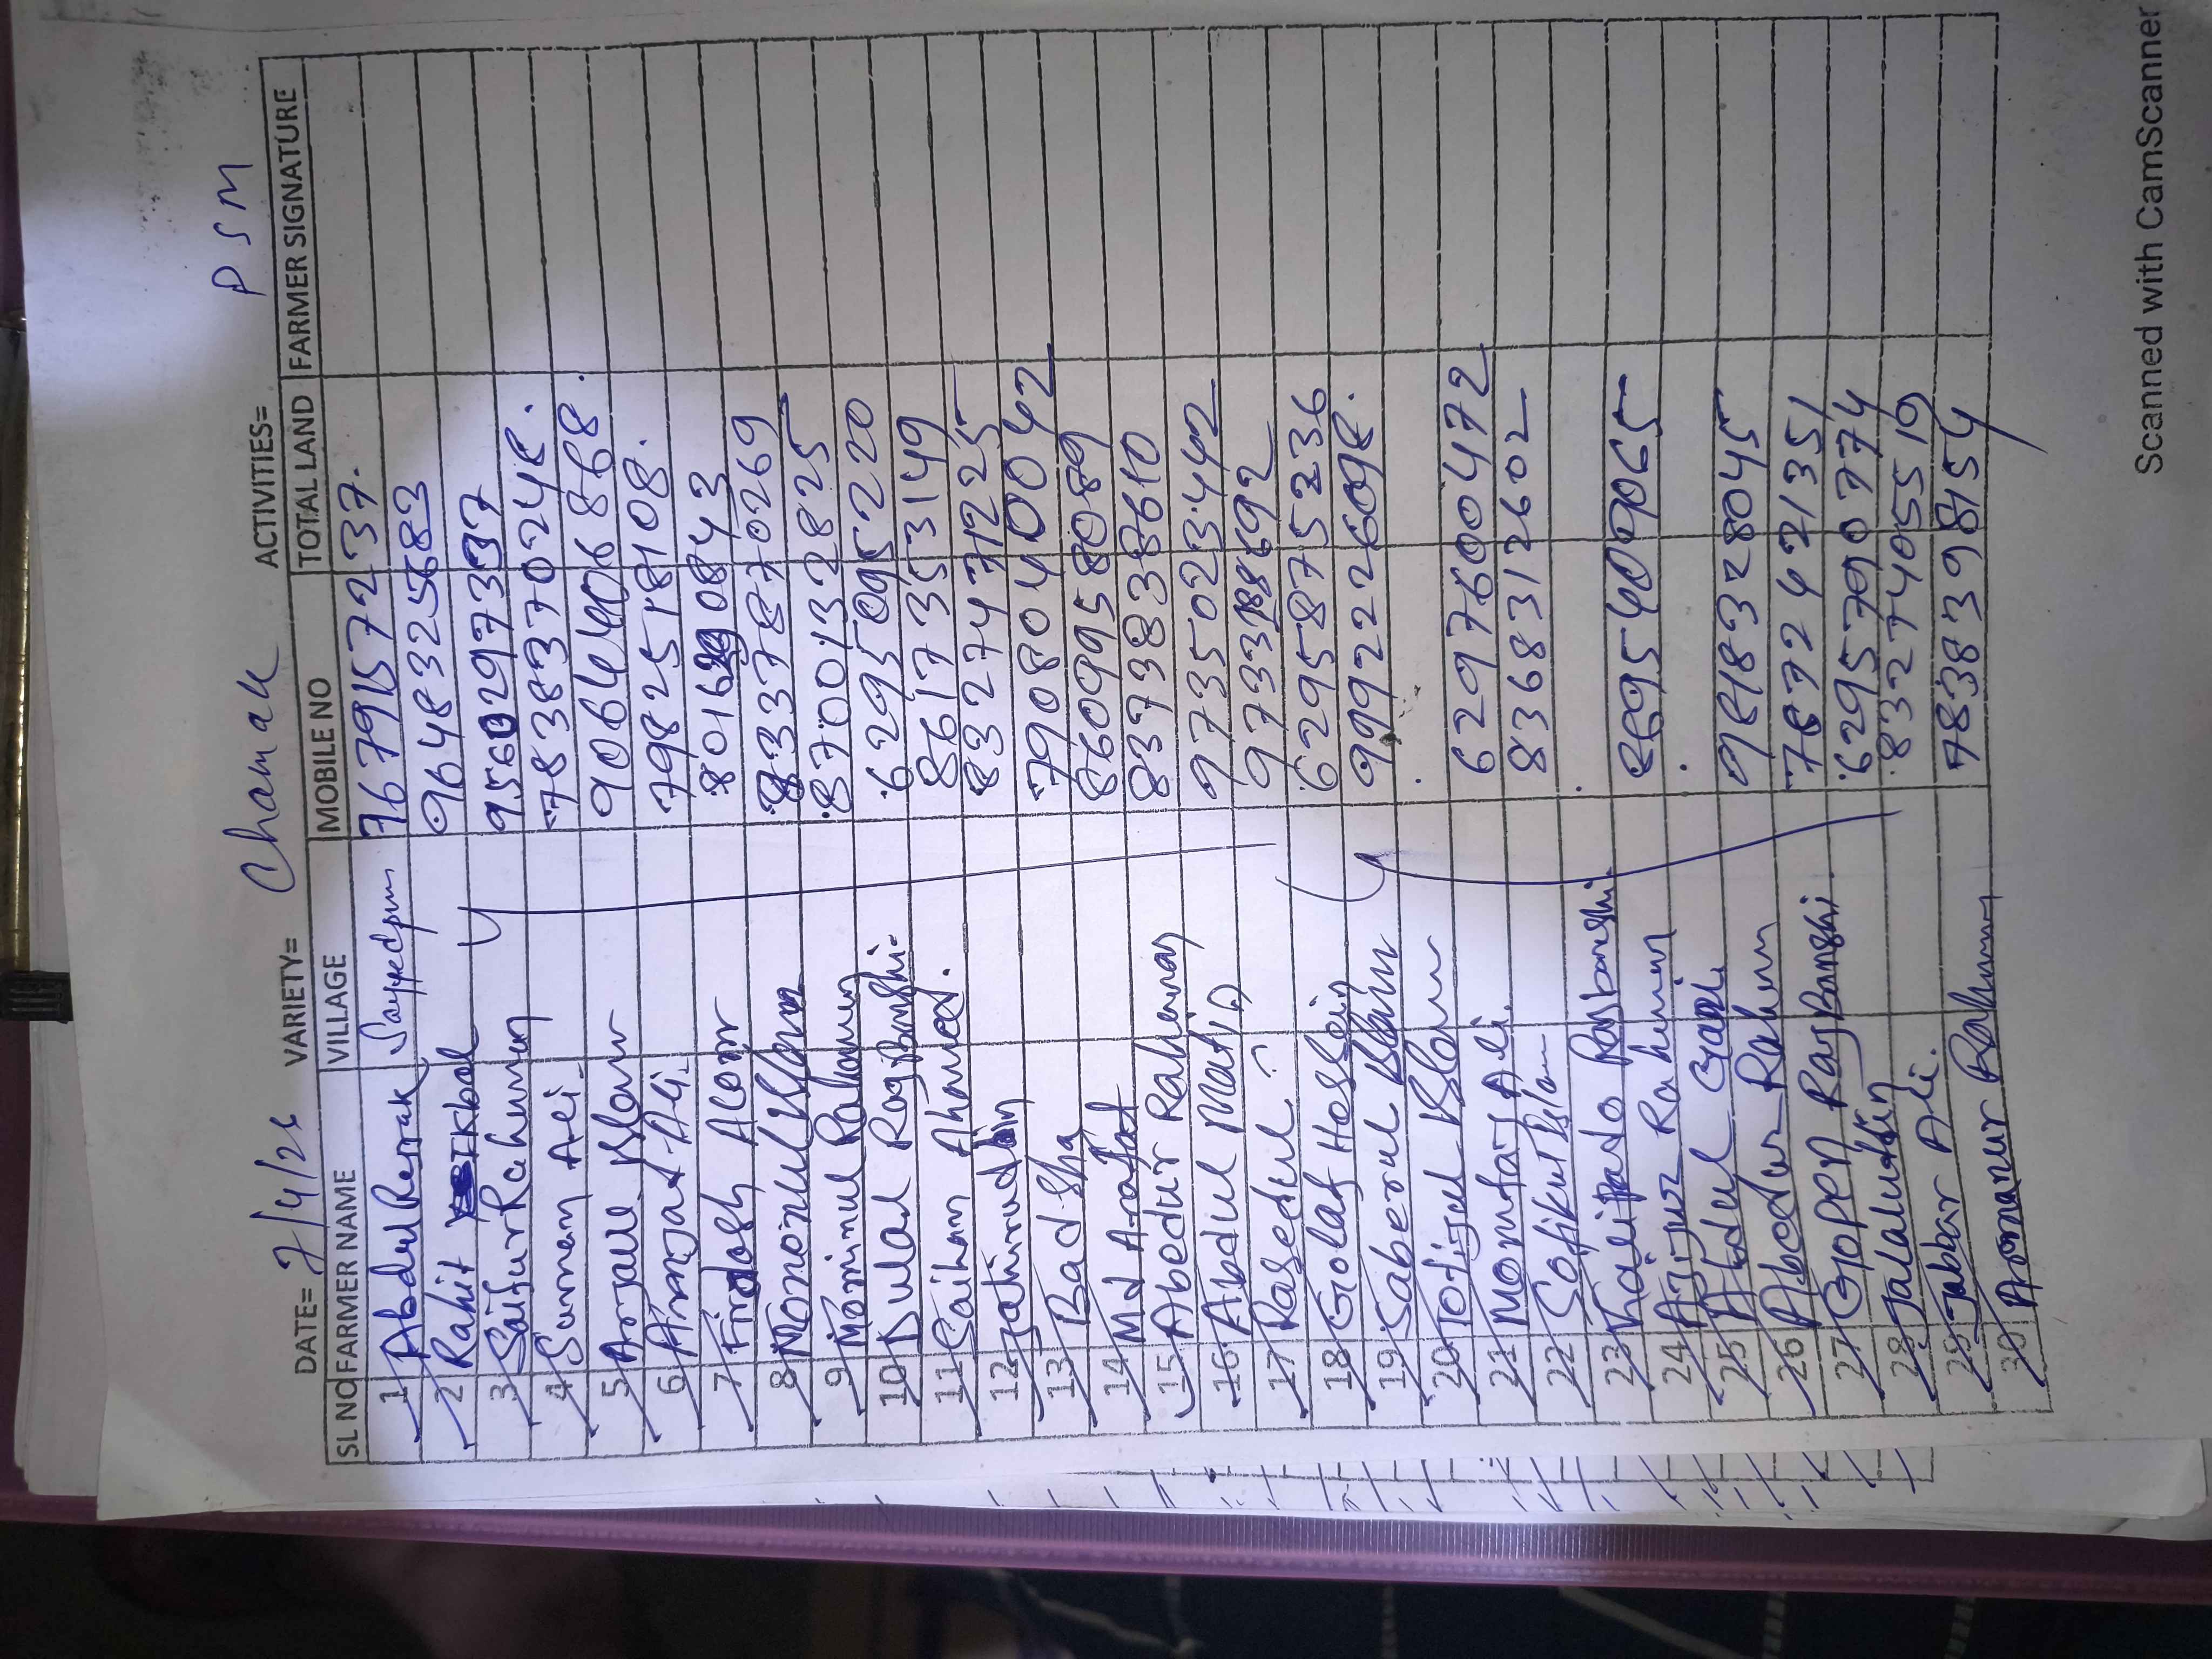 DATE= 7/4/26 VARIETY= Chamak ACTIVITIES= PSM
SL NO FARMER NAME VILLAGE MOBILE NO TOTAL LAND FARMER SIGNATURE
1 Abdul Rerrak 7679157237.
2 Rahit IKbal 9648325683
3 Saifur Rahuman 9560297337
4 Suman Ali 7838370248.
5 Arjaul Islam 9064406868.
6 Amjad Ali 7982518408.
7 Firdosh Alom
8 Monorul Islam 8337870269
9 Mominul Rahman 8700132825
10 Dulal RajBanshi. 6295095220
11 Saiham Ahamed. 8617353149
12 Jahirudin 8327471225
13 Bad Sha 7908040042
14 Md Arafat 8609958089
15 Abedur Rahaman 8373838610
16 Abdul Matin 9735023442
17 Rasedul 9733188692
18 Golap Hossein 6295875236
19 Saberul Islam 9992226098.
20 Tofijul Islam
21 Momtaj Ali. 6297600472
22 Safikul Islam 8368312602
23 Kalipado Rajbanshi
24 Ajijur Rahman
25 Abdul
26 Abedur Rahman 7872421351
27 Gopen RajBanshi 6295790774
28 Jalaluddin 8327405519
29 Jabbar Ali. 7838398454
30 Anamur Rahman
Scanned with CamScanner